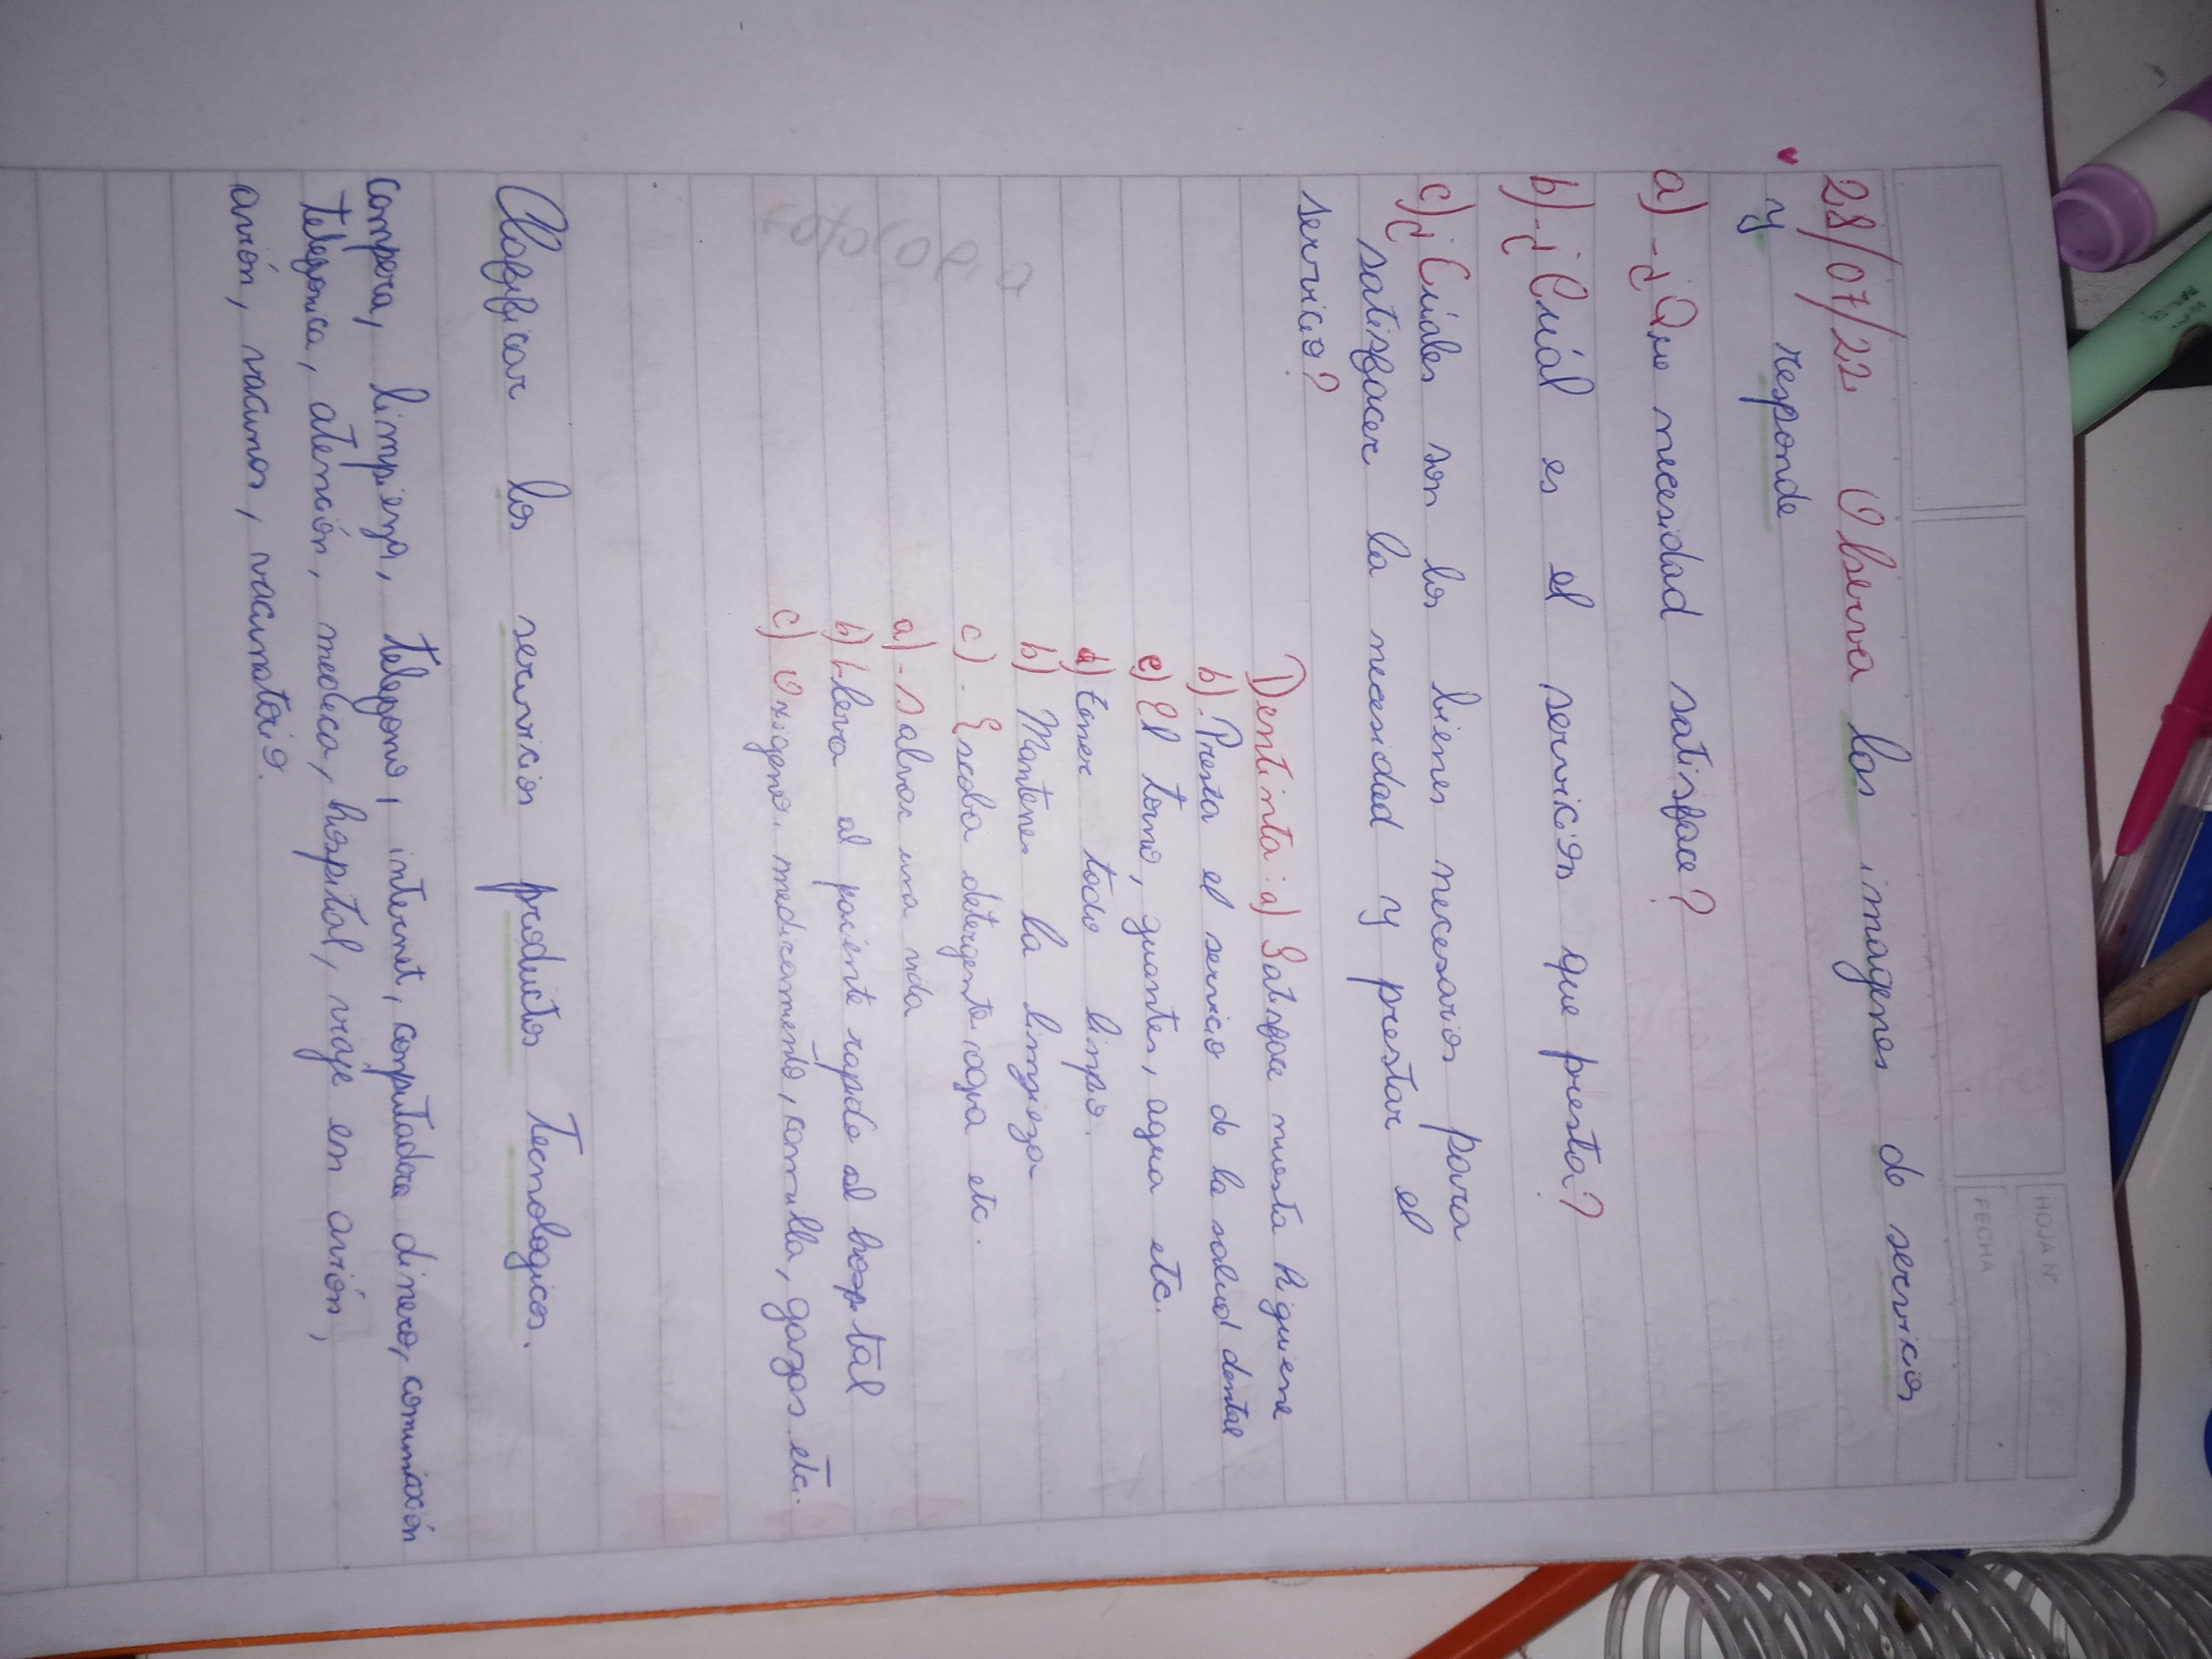 HOJA N°
FECHA
28/07/22 Observa las imagenes de servicios
y responde
a) -¿Que necesidad satisface?
b)-¿Cuál es el servicios que presta?
c)¿Cuáles son los bienes necesarios para
satisfacer la necesidad y prestar el
servicio?
Dentinta: a) Satisface nuesta higuiene
b). Presta el servicio de la salud dental
c) El torno, guantes, agua etc.
a) tener todo limpio.
b) Mantener la limpieza
c). Escoba detergente agua etc.
a). Salvar una vida
b) Lleva al paciente rápido al hospital
c) Oxigeno, medicamento, camilla, gazas. etc.
Clasificar los servicios productos Tecnologicos.
Compera, limpieza, telefono, internet, computadora dinero, comunicación
Telefonica, atención, medica, hospital, viaje en avión,
avión, vacunas, vacunatorio.